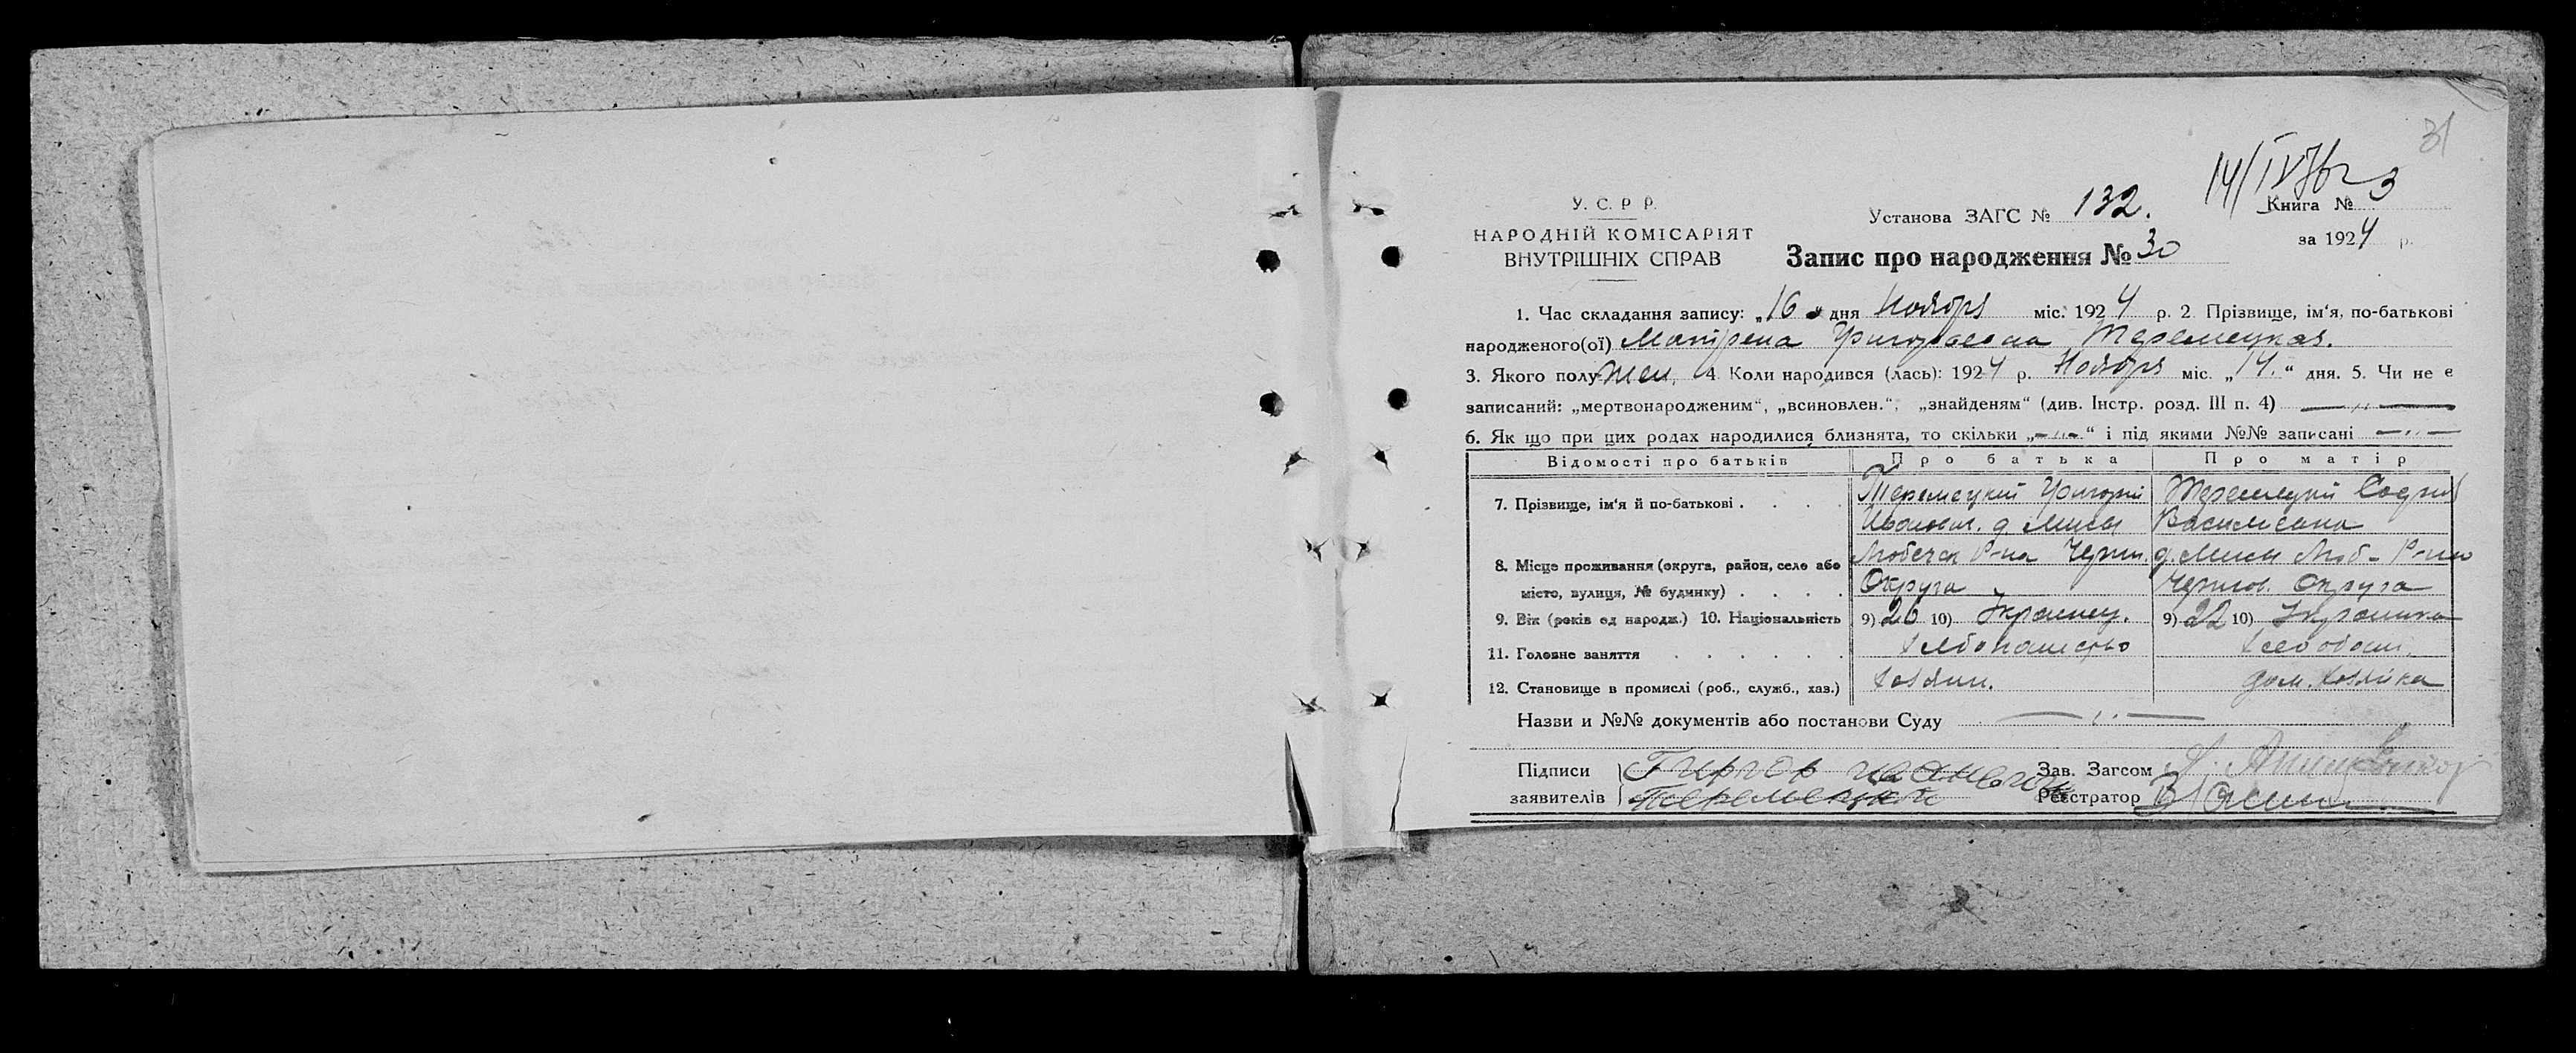 31
14/IV 76г
У. С. Р. Р.
НАРОДНІЙ КОМІСАРІЯТ
ВНУТРІШНІХ СПРАВ
Установа ЗАГС № 132.
Книга № 3
за 1924 р.
Запис про народження № 30
1. Час складання запису: „16“ дня Ноября міс. 1924 р. 2 Прізвище, ім‘я, по-батькові
народженого(ої) Мотрена Григорьевна Теремецкая.
3. Якого полу жен, 4. Коли народився (лась): 1924 р. Ноября міс. „14.“ дня. 5. Чи не є
записаний: „мертвонародженим“, „всиновлен.“, „знайденям“ (див. Інстр. розд. III п. 4) — „ —
6. Як що при цих родах народилися близнята, то скільки „—„—“ і під якими №№ записані —„—
Відомості про батьків Про батька Про матір
7. Прізвище, ім‘я й по-батькові . . . . Теремецкий Григорий Теремецкая
Иванов. д. Мисы Василевна
8. Місце проживання (округа, район, село або Любечск Р-на Черни. д. Мисы Люб- Р-на
місто, вулиця, № будинку) . . . . Округа Чернов. Округа
9. Вік (років од народж.) 10. Національність 9) 26 10) Украинец. 9) 22 10) Украинка
11. Головне заняття . . . . . . Хлебопашество Хлебопаш.
12. Становище в промислі (роб., служб., хаз.) Хозяин. дом. хозяйка
Назви и №№ документів або постанови Суду — „ —
Підписи Зав. Загсом
заявителів Теремецкий Реєстратор